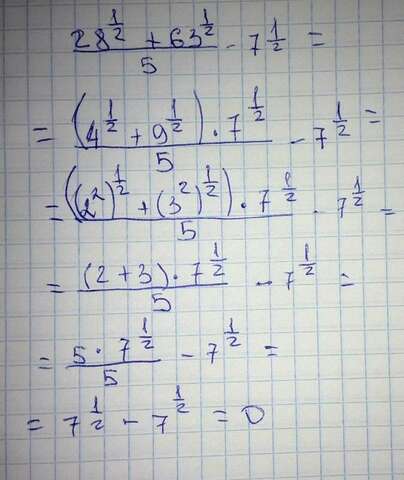 (28^(1/2) + 63^(1/2))/5 - 7^(1/2) =
= ((4^(1/2) + 9^(1/2)) · 7^(1/2))/5 - 7^(1/2) =
= (((2^2)^(1/2) + (3^2)^(1/2)) · 7^(1/2))/5 - 7^(1/2) =
= ((2 + 3) · 7^(1/2))/5 - 7^(1/2) =
= (5 · 7^(1/2))/5 - 7^(1/2) =
= 7^(1/2) - 7^(1/2) = 0